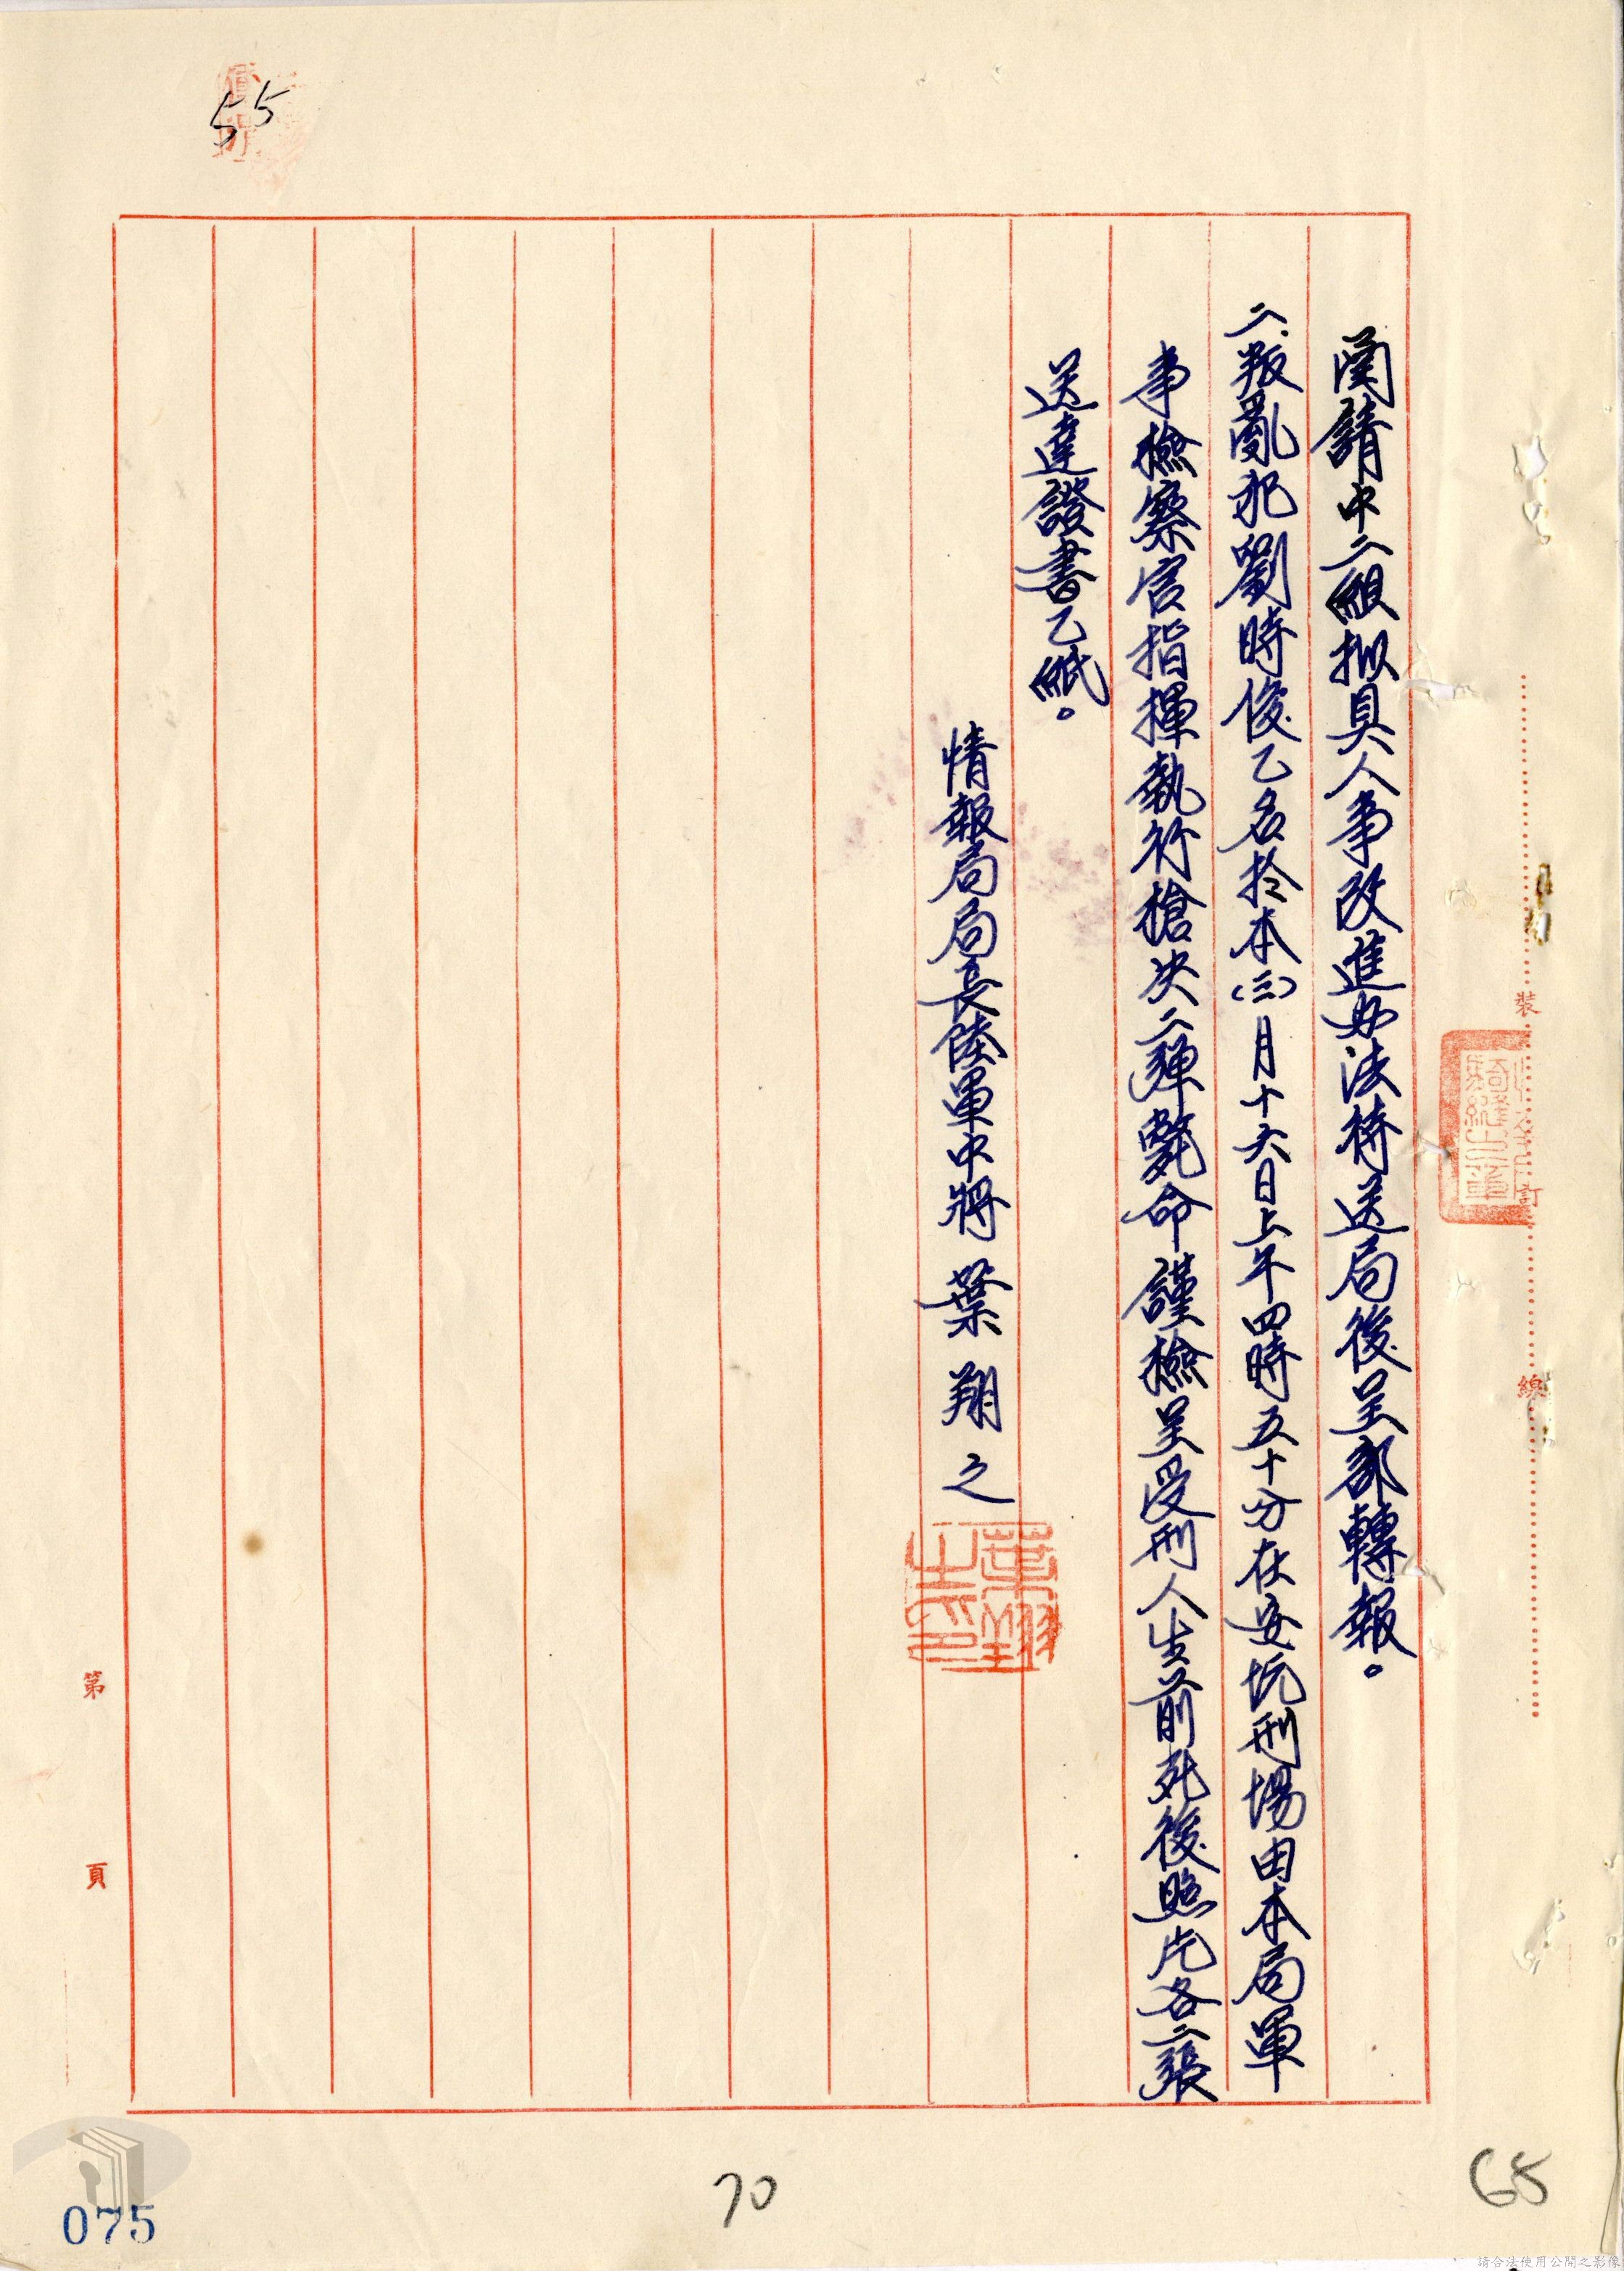 55
函請中二組拟具人事改進办法待送局後呈部轉報。
二、叛亂犯劉時俊乙名於本(三)月十六日上午四時五十分在安坑刑場由本局軍
事檢察官指揮執行槍決二彈斃命謹檢呈受刑人生前死後照片各二張
送達證書乙紙。
情報局局長陸軍中將葉翔之
葉翔之印
裝
訂
線
第
頁
075
70
68
請合法使用公開之影像